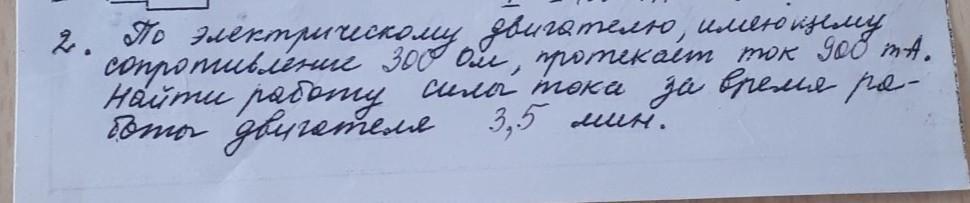 2. По электрическому двигателю, имеющему
сопротивление 300 Ом, протекает ток 900 mA.
Найти работу силы тока за время ра-
боты двигателя 3,5 мин.